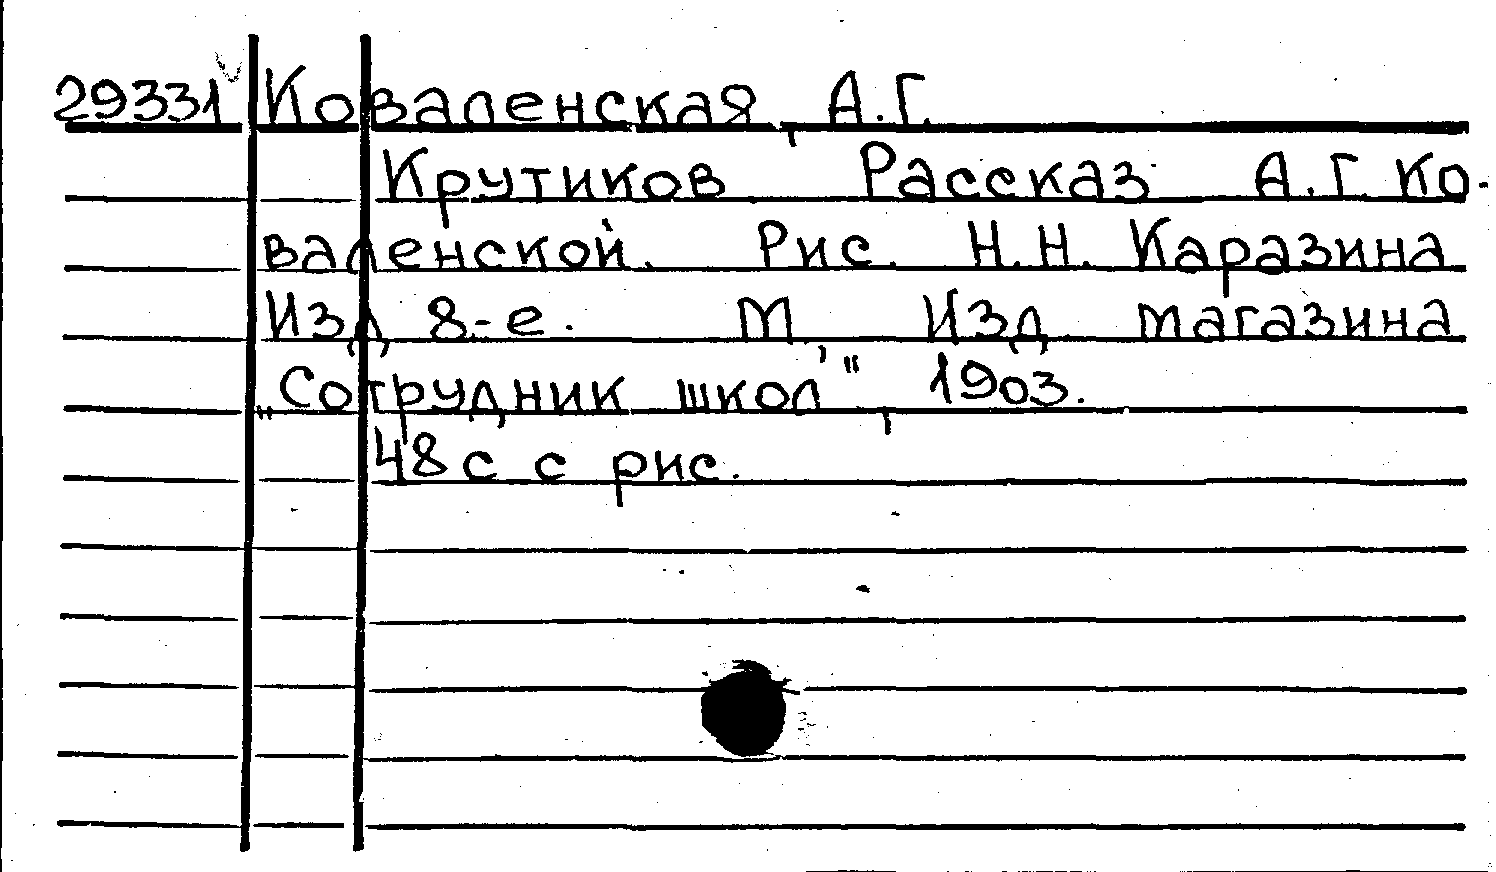 29331 Коваленская, А.Г.
Крутиков Рассказ А.Г. Ко-
валенской. Рис. Н.Н. Каразина
Изд 8-е. М, Изд магазина
„Сотрудник школ", 1903.
48 с с рис.